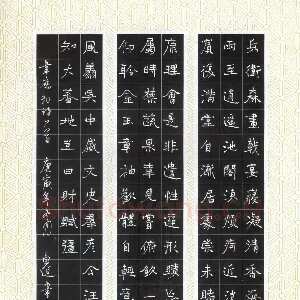 兵衛森畫戟宴寢凝清香
雨至逍遙池閣涼煩疴近消
賓復滿堂自慚居處崇未睹
康理會是非遣性達形跡
屬時禁蔬果幸見嘗俯飲一
仰聆金玉章神歡體自輕意
風翔吳中盛文史羣彥今汪
知大藩地豈曰財賦彊
韋應物詩一首 庚寅年